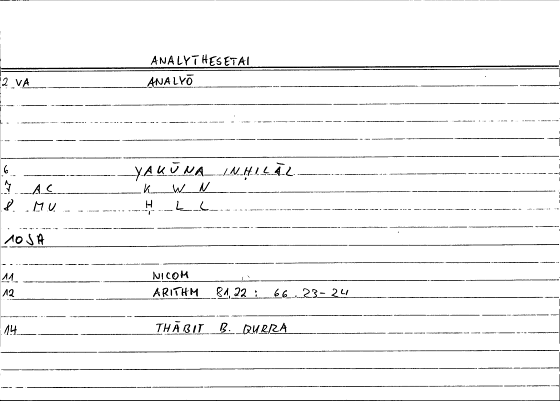 ANALYTHESETAI
2 VA ANALYŌ
6 YAKŪNA INḤILĀL
7 AC K W N
8 MU Ḥ L L
10 SA
11 NICOM
12 ARITHM 81,22 : 66.23-24
14 THĀBIT B. QURRA